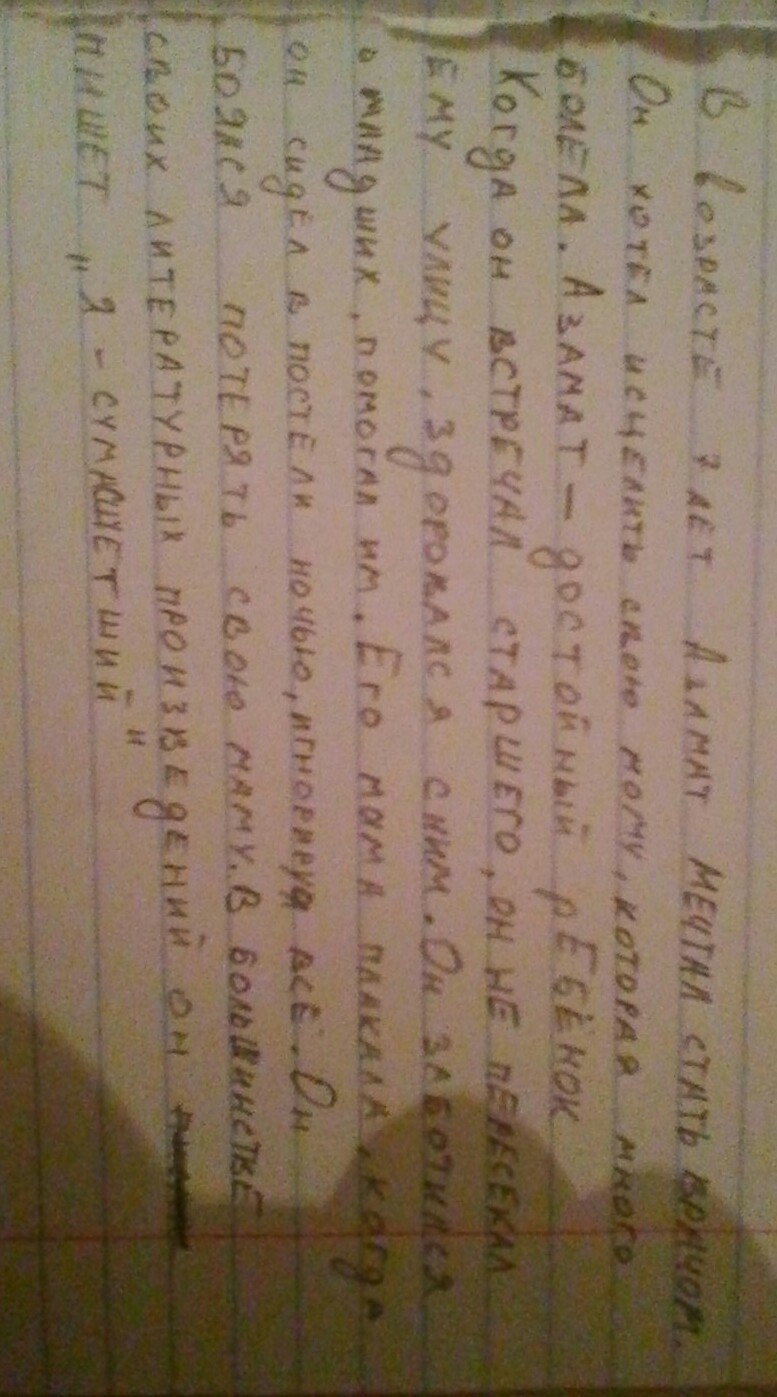 В возрасте 7 лет Азамат мечтал стать врачом.
Он хотел исцелить свою маму, которая много
болела. Азамат — достойный ребёнок
Когда он встречал старшего, он не пересекал
ему улицу, здоровался с ним. Он заботился
о младших, помогал им. Его мама плакала, когда
он сидел в постели ночью, игнорируя всё. Он
боялся потерять свою маму. В большинстве
своих литературных произведений он
пишет „я - сумашетший"